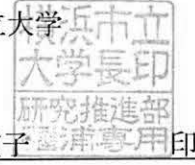 大学
横浜市立
大学長印
研究推進部
福浦専用
子
印